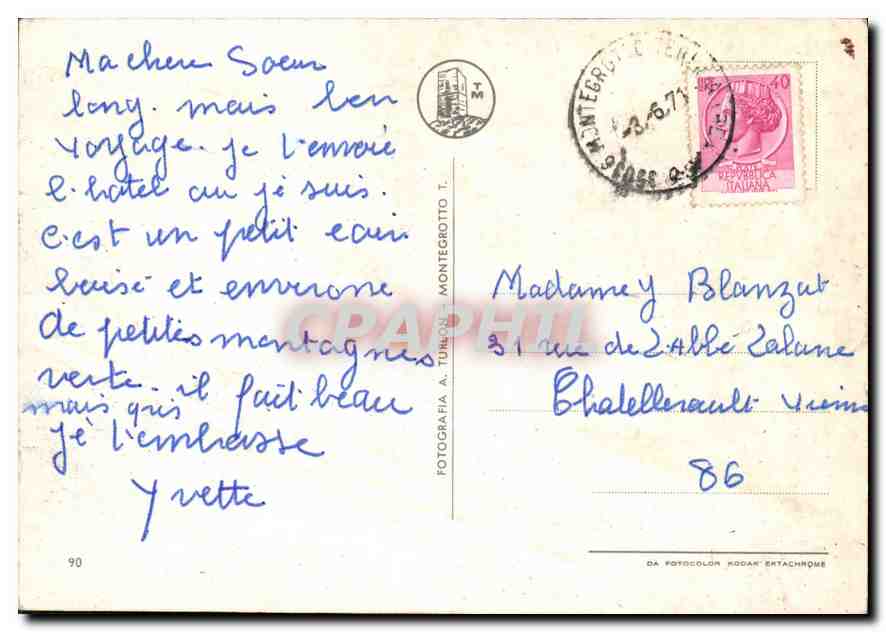 Ma chere Soeur
long. mais bon
voyage. je t'envoie
l. hotel ou je suis.
C'est un petit coin
boisé et environe
de petites montagnes
verte. il fait beau
mais gris
je t'embrasse
Yvette
90
TM
FOTOGRAFIA A. TURLON - MONTEGROTTO T.
CPAPHIL
MONTEGROTTO TERME
8.6.71
35036
LIRE 40
POSTE
REPVBBLICA
ITALIANA
Madame Y Blanzat
31 rue de L'Abbé Lalane
Chatellerault Vienne
86
DA FOTOCOLOR KODAK EKTACHROME